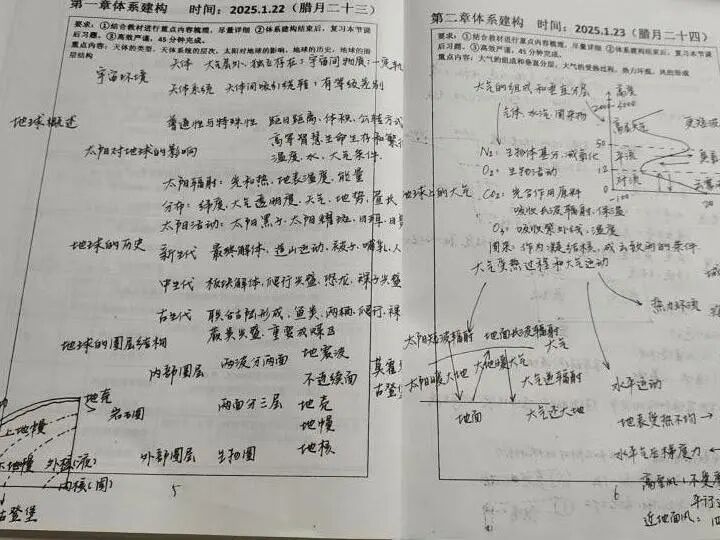 第一章体系建构 时间：2025.1.22（腊月二十三）
要求：①结合教材进行重点内容梳理，尽量详细 ②体系建构结束后，复习本节课
后习题。③高效严谨，45分钟完成。
重点内容：天体的类型，天体系统的层次，太阳对地球的影响，地球的历史，地球的圈
层结构
天体 大气层外、独立存在；宇宙间物质
宇宙环境
天体系统 天体间吸引绕转；有等级差别
地球概述
普通性与特殊性 距日距离、体积、公转方式
高等智慧生命生存和繁
太阳对地球的影响
温度、水、大气条件
太阳辐射：光和热、地表温度、能量
分布：纬度、大气透明度、天气、地势、昼长
太阳活动：太阳黑子、太阳耀斑、日珥、日
地球的历史 新生代 最终解体、造山运动、被子、哺乳、人
中生代 板块解体、爬行类盛、恐龙、裸子类盛
古生代 联合古陆形成、鱼类、两栖、爬行、裸
蕨类类盛、重要成煤期
地球的圈层结构
内部圈层 两波分两面 地震波
不连续面
莫霍
古登堡
地壳
岩石圈
两面分三层 地壳
地幔
地核
上地幔
下地幔 外核（液）
内核（固）
古登堡
外部圈层 生物圈
5
第二章体系建构 时间：2025.1.23（腊月二十四）
要求：①结合教材进行重点内容梳理，尽量详细 ②体系建构结束后，复习本节
后习题。③高效严谨，45分钟完成。
重点内容：大气的组成和垂直分层，大气的受热过程，热力环流，风的形成
大气的组成和垂直分层
高度
气体、水汽、固杂物
高层大气
50
平流
12
对流
N₂：生物体基分、减氧化
O₂：生物活动
地球上的大气
CO₂：光合作用原料
吸收长波辐射、保温
O₃：吸收紫外线、温度
固杂：作为凝结核，成云致雨的条件
大气受热过程和大气运动
热力环流
太阳短波辐射 地面长波辐射
大气
太阳暖大地 大地暖大气
大气逆辐射
地面 大气还大地
水平运动
地表受热不均→
水平气压梯度力
高空风
近地面风：
6